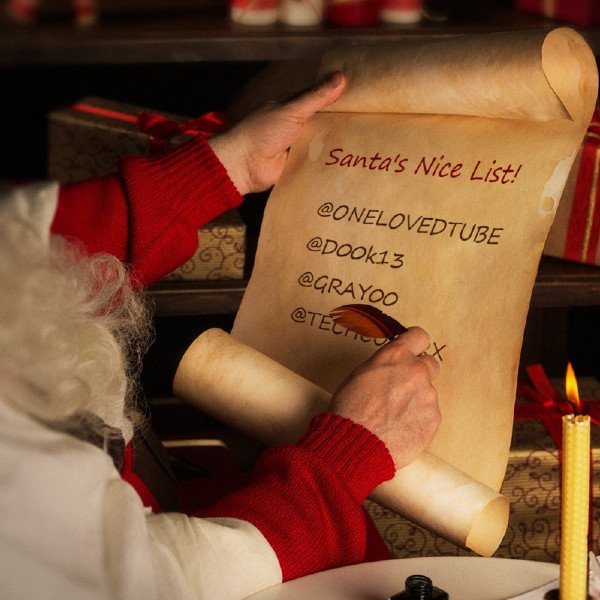 Santa's Nice List!
@ONELOVEDTUBE
@DOOK13
@GRAYOO